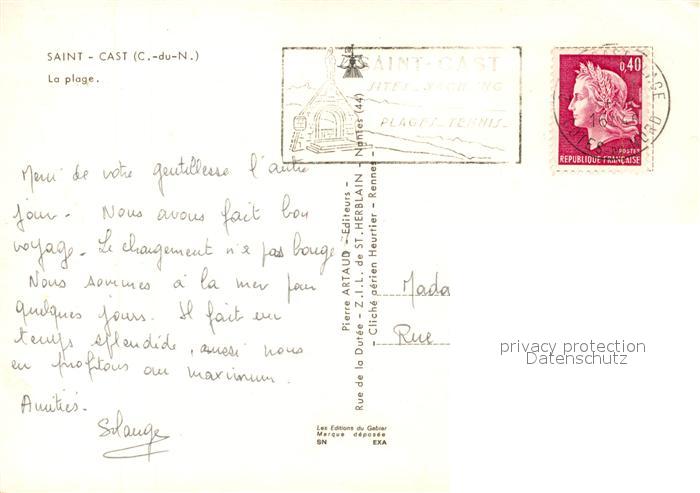 SAINT - CAST (C.-du-N.)
La plage.
SAINT-CAST
SITES - YACHTING
PLAGES-TENNIS-
0,40
POSTES
REPUBLIQUE FRANÇAISE
Merci de votre gentillesse l'autre
jour. Nous avons fait bon
voyage. Le chargement n'a pas bougé
Nous sommes à la mer pour
quelques jours. Il fait un
temps splendide, aussi nous
en profitons au maximum.
Amitiés.
Solange
Pierre ARTAUD - Editeurs -
Rue de la Dutée - Z.I.L. de ST. HERBLAIN - Nantes (44)
- Cliché aérien Heurtier - Rennes -
Les Editions du Gabier
Marque déposée
SN EXA
Mada
Rue
privacy protection
Datenschutz